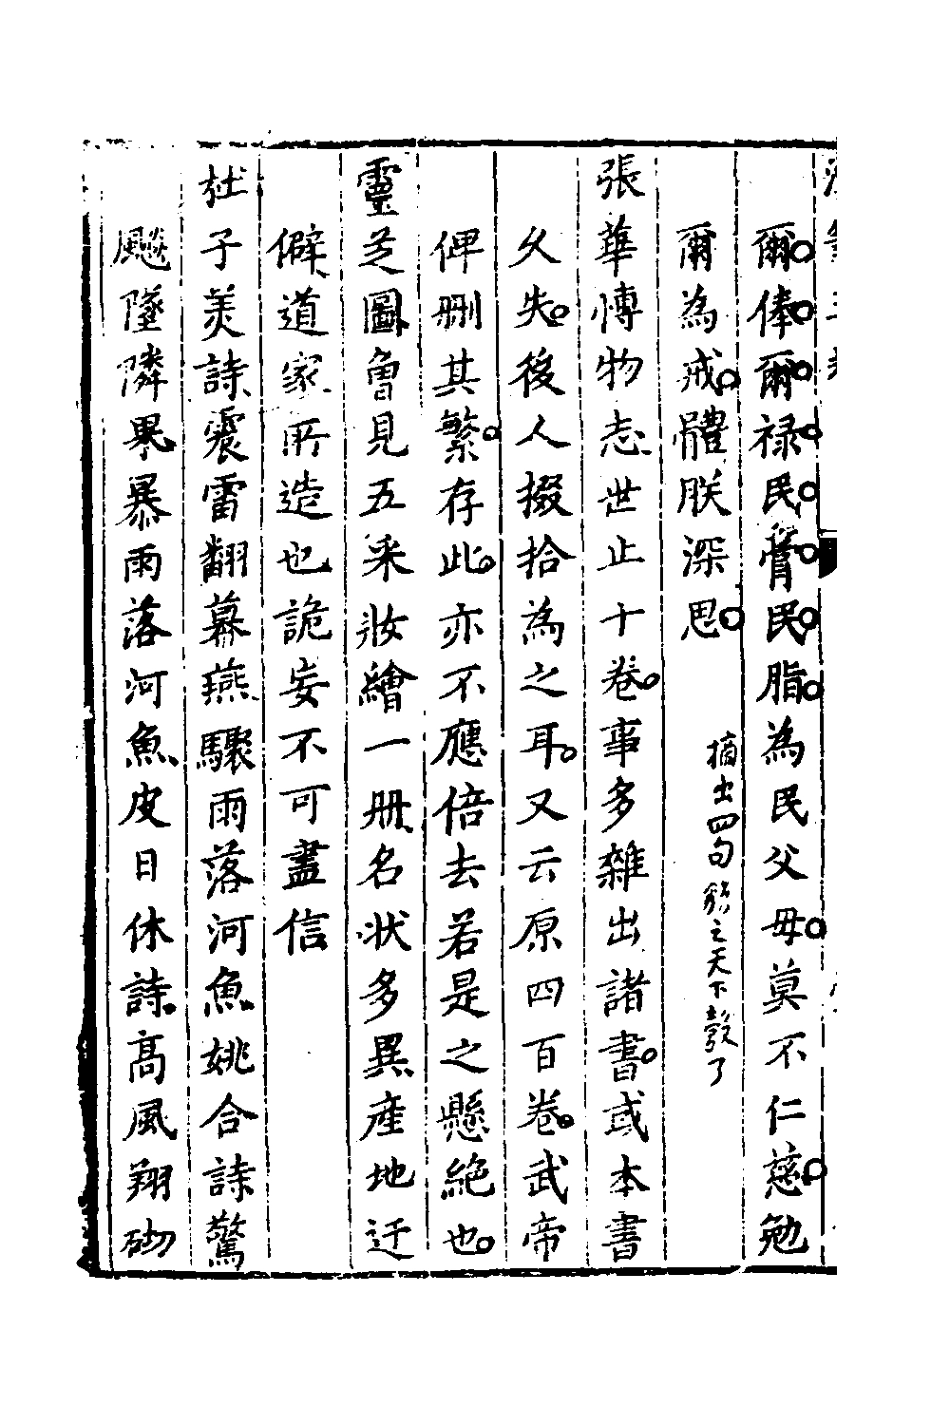 爾俸爾禄民膏民脂為民父毋莫不仁慈勉
爾為戒體朕深思
摘出四句
之天下
了
張華愽物志世止十卷事多雜出諸書或本書
久失後人掇拾為之耳又云原四百卷武帝
俾删其繁存此亦不應倍去若是之懸絶也
靈芝圖曽見五采妝繪一册名状多異産地迂
僻道家所造也詭妄不可盡信
杜子美詩震雷翻幕燕驟雨落河魚姚合詩驚
飈墜隣果暴雨落河魚皮日休詩高風翔砌